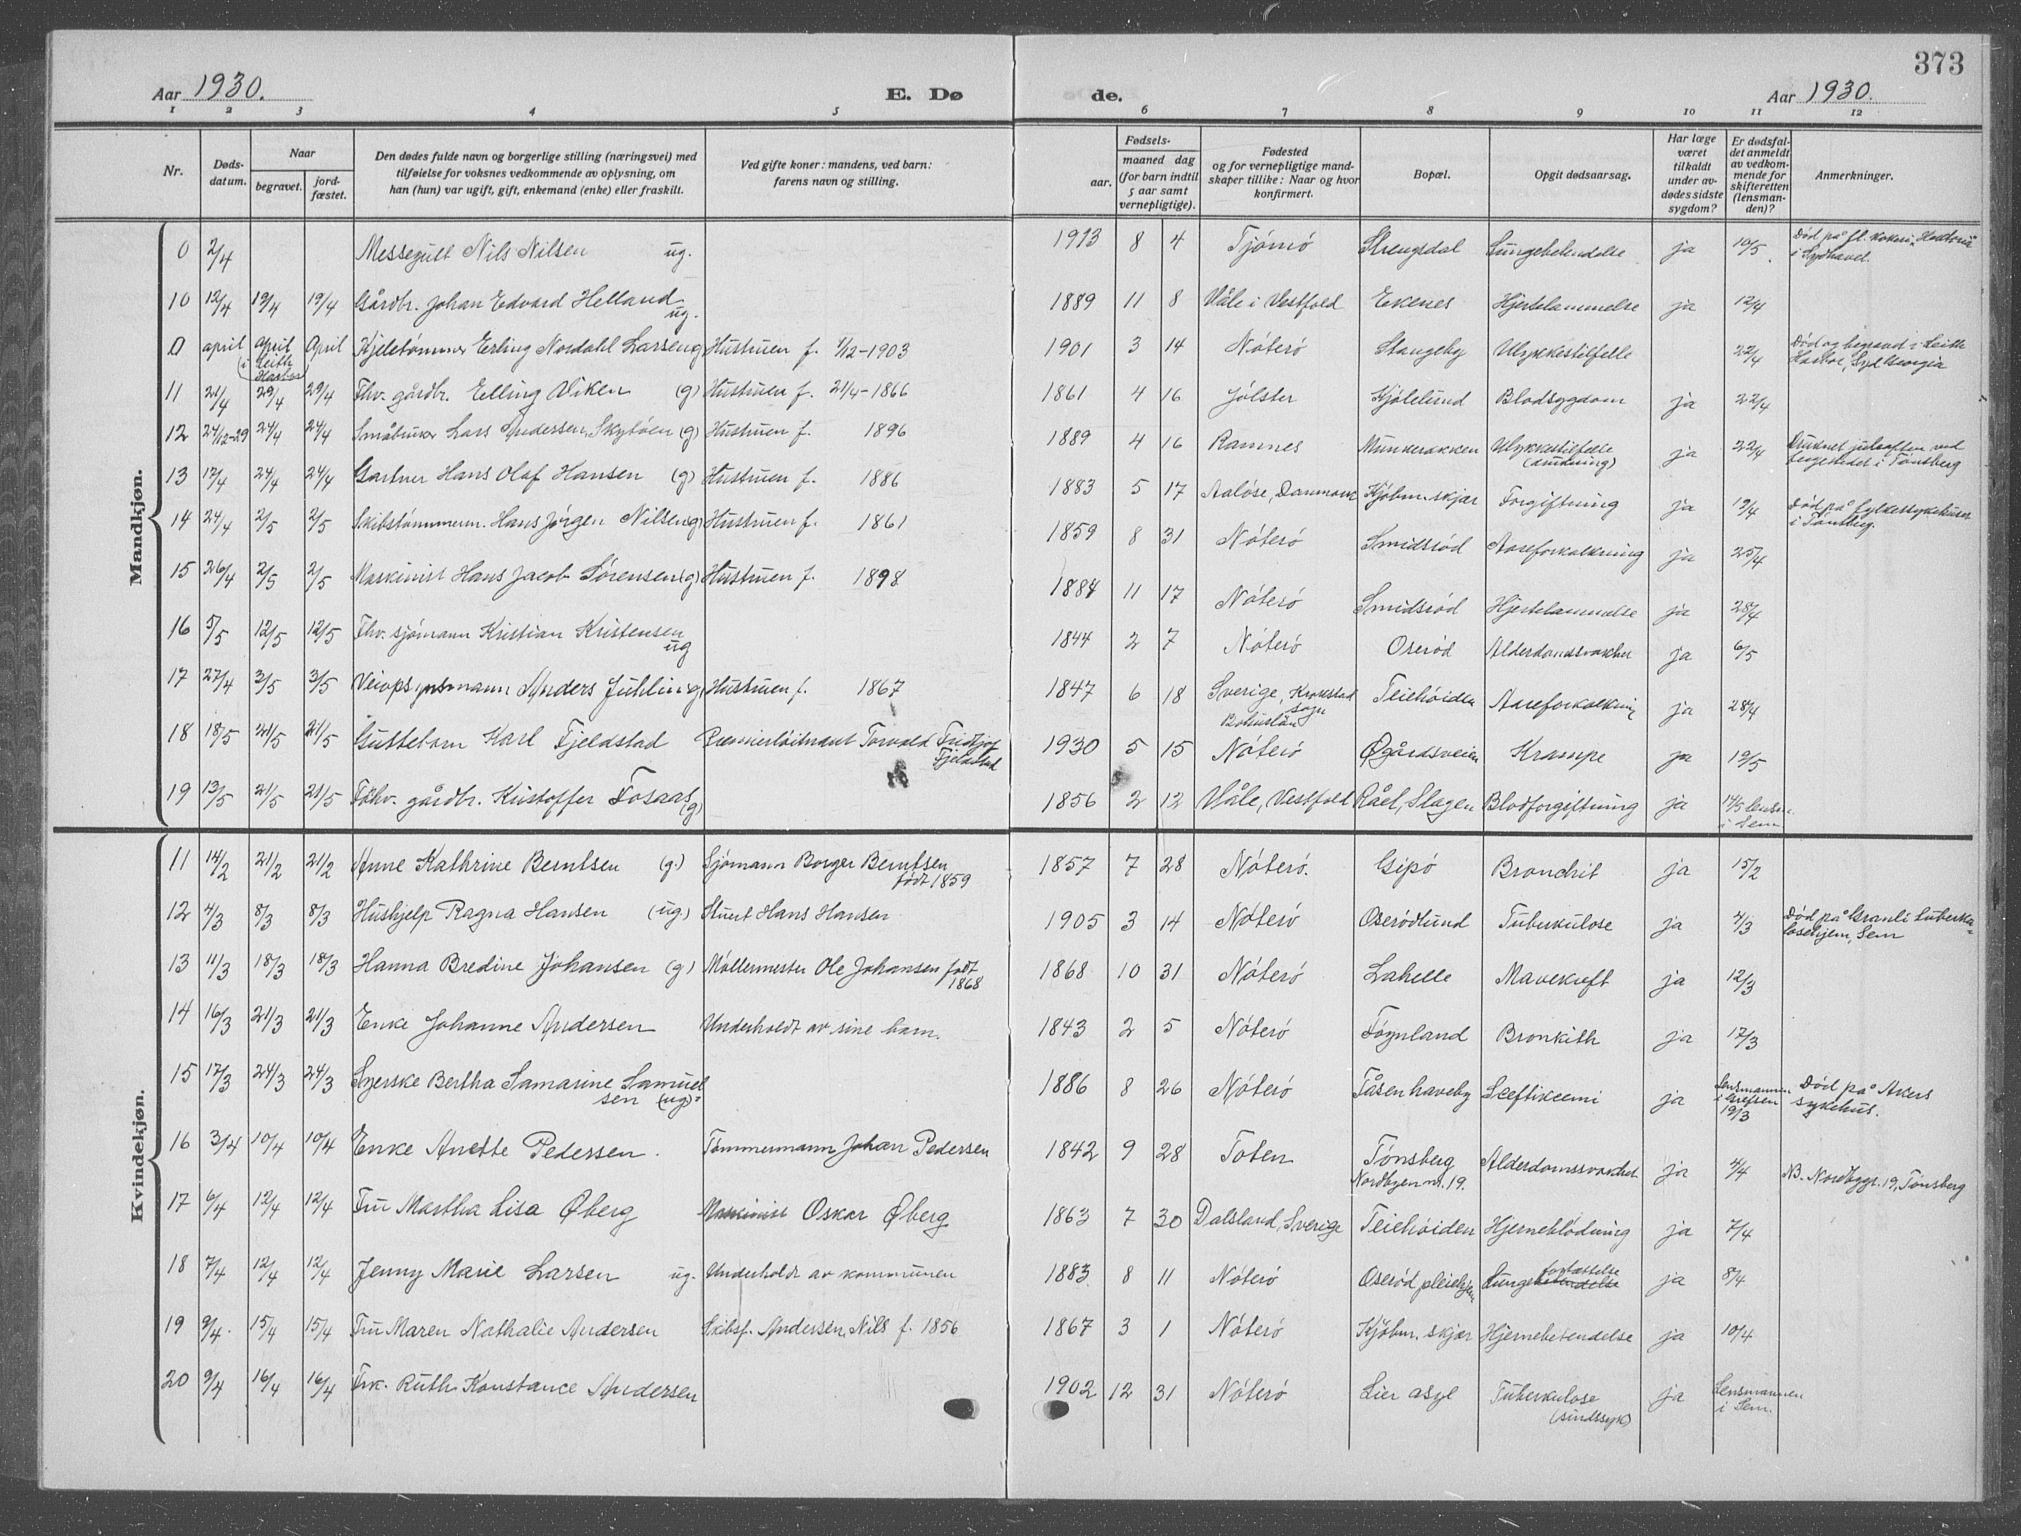 373
Aar 1930. E. Dø de. Aar 1930.
1 2 3 4 5 6 7 8 9 10 11 12
Nr. Døds-datum. Naar begravet. jord-fæstet. Den dødes fulde navn og borgerlige stilling (næringsvei) med tilføielse for voksnes vedkommende av oplysning, om han (hun) var ugift, gift, enkemand (enke) eller fraskilt. Ved gifte koner: mandens, ved barn: farens navn og stilling. Fødsels- aar. maaned dag (for barn indtil 5 aar samt vernepligtige). Fødested og for vernepligtige mandskaper tillike: Naar og hvor konfirmert. Bopæl. Opgit dødsaarsag. Har læge været tilkaldt under avdødes sidste sygdom? Er dødsfaldet anmeldt av vedkommende for skifteretten (lensmanden)? Anmerkninger.
Mandkjøn.
0 2/4 Messegutt Nils Nilsen ug. 1913 8 4 Tjømø Strengsdal Lungebetendelse ja 10/5 Død på fl. kokeri i Sydhavet.
10 12/4 19/4 19/4 Gårdbr. Johan Edvard Helland ug. 1889 11 8 Våle i Vestfold Ekenes Hjertelammelse ja 12/4
0 april april i Leith Harbor April Kjeletømmer Erling Nordahl Larsen g Hustruen f. 1/12-1903 1901 3 14 Nøterø Stangeby Ulykkestilfelle 22/4 Død og begravd i Leith Harbor, Syd Georgia
11 21/4 29/4 29/4 Fhv. gårdbr. Elling Viken (g) Hustruen f. 21/4-1866 1861 4 16 Jølster Kjølelund Blodsygdom ja 22/4
12 24/12-29 24/4 24/4 Småbruker Lars Andersen, Skybøen (g) Hustruen f. 1896 1889 4 16 Ramnes Munkerakken Ulykkestilfelle (drukning) ja 22/4 Druknet juleaften ved fergestedet i Tønsberg
13 17/4 24/4 24/4 Gartner Hans Olaf Hansen (g) Hustruen f. 1886 1883 5 17 Aaløse, Danmark Kjøbm. skjær Forgiftning ja 19/4 Død på fylkessykehuset i Tønsberg.
14 24/4 2/5 2/5 Skibstømmerm. Hans Jørgen Nilsen (g) Hustruen f. 1861 1859 8 31 Nøterø Smidsrød Aareforkalkning ja 25/4
15 26/4 2/5 2/5 Maskinist Hans Jacob Sørensen (g) Hustruen f. 1898 1884 11 17 Nøterø Smidsrød Hjertelammelse ja 28/4
16 5/5 12/5 12/5 Fhv. sjømann Kristian Kristensen ug 1844 2 7 Nøterø Oserød Alderdomssvakhet ja 6/5
17 27/4 3/5 3/5 Veiopsynsmann Anders Juhlin (g) Hustruen f. 1867 1847 6 18 Sverige, Krokstad sogn Bohuslän Teiehøiden Aareforkalkning ja 28/4
18 18/5 21/5 21/5 Guttebarn Karl Fjeldstad Premierløitnant Torvald Fridtjof Fjeldstad 1930 5 15 Nøterø Øgårdsveien Krampe ja 19/5
19 13/5 21/5 21/5 Fhv. gårdbr. Kristoffer Fosaas (g) 1856 2 12 Våle, Vestfold Råel, Slagen Blodforgiftning ja 14/5 lensm. i Sem
Kvindekjøn.
11 14/2 21/2 21/2 Anne Kathrine Berntsen (g.) Sjømann Borger Berntsen født 1859 1857 7 28 Nøterø. Gipø Bronchit ja 15/2
12 4/3 8/3 8/3 Hushjelp Ragna Hansen (ug) Stuert Hans Hansen 1905 3 14 Nøterø Oserødlund Tuberkulose ja 4/3 Død på Granli tuberkulosehjem, Sem
13 11/3 18/3 18/3 Hanna Bredine Johansen (g) Møllermester Ole Johansen født 1868 1868 10 31 Nøterø Lahelle Mavekreft ja 12/3
14 16/3 21/3 21/3 Enke Johanne Andersen Underholdt av sine barn. 1843 2 5 Nøterø Føynland Bronkith ja 17/3
15 17/3 24/3 24/3 Syerske Bertha Samarine Samuelsen (ug) 1886 8 26 Nøterø Tåsen haveby Sceftikemi ja Lensmannen i Grefsen 19/3 Død på Akers sykehus.
16 3/4 10/4 10/4 Enke Anette Pedersen. Tømmermann Johan Pedersen 1842 9 28 Toten Tønsberg Nordbyen nr. 19. Alderdomssvakhet ja 4/4 NB. Nordbygt. 19, Tønsberg
17 6/4 12/4 12/4 Fru Martha Lisa Øberg Maskinist Oskar Øberg 1863 7 30 Dalsland, Sverige Teiehøiden Hjerneblødning ja 7/4
18 7/4 12/4 12/4 Jenny Marie Larsen ug. Underholdt av kommunen 1883 8 11 Nøterø Oserød pleiehjem Lungebetendelse ja 8/4
19 9/4. 15/4 15/4 Fru Maren Nathalie Andersen Skibsf. Andersen, Nils f. 1856 1867 3 1 Nøterø Kjøbm. skjær Hjernebetendelse ja 10/4
20 9/4 16/4 16/4 Frk. Ruth Konstance Andersen 1902 12 31 Nøterø Lier asyl Tuberkulose (sindssyk) ja Lensmannen i Sem.